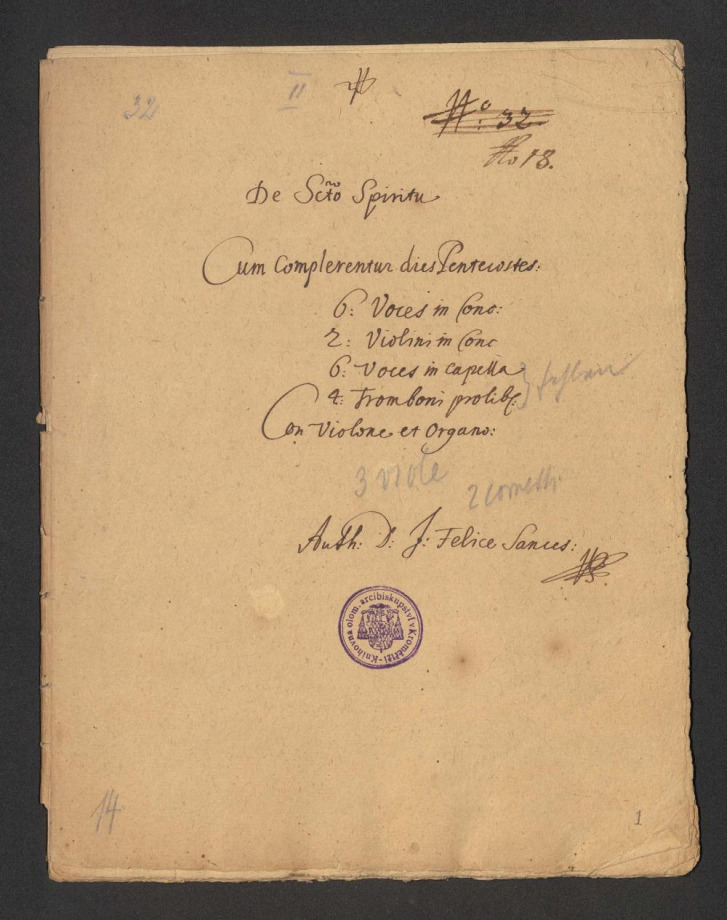 32
II
No: 32
No 18.
De Scto Spiritu
Cum Complerentur dies Pentecostes:
6: Voces in Conc:
2: Violini in Conc
6: Voces in Capella
4: Tromboni pro lib:
Con Violone et Organo:
3 viole
2 cornetti
Auth: D: J: Felice Sances:
Knihovna olom. arcibiskupství v Kroměříži
14
1